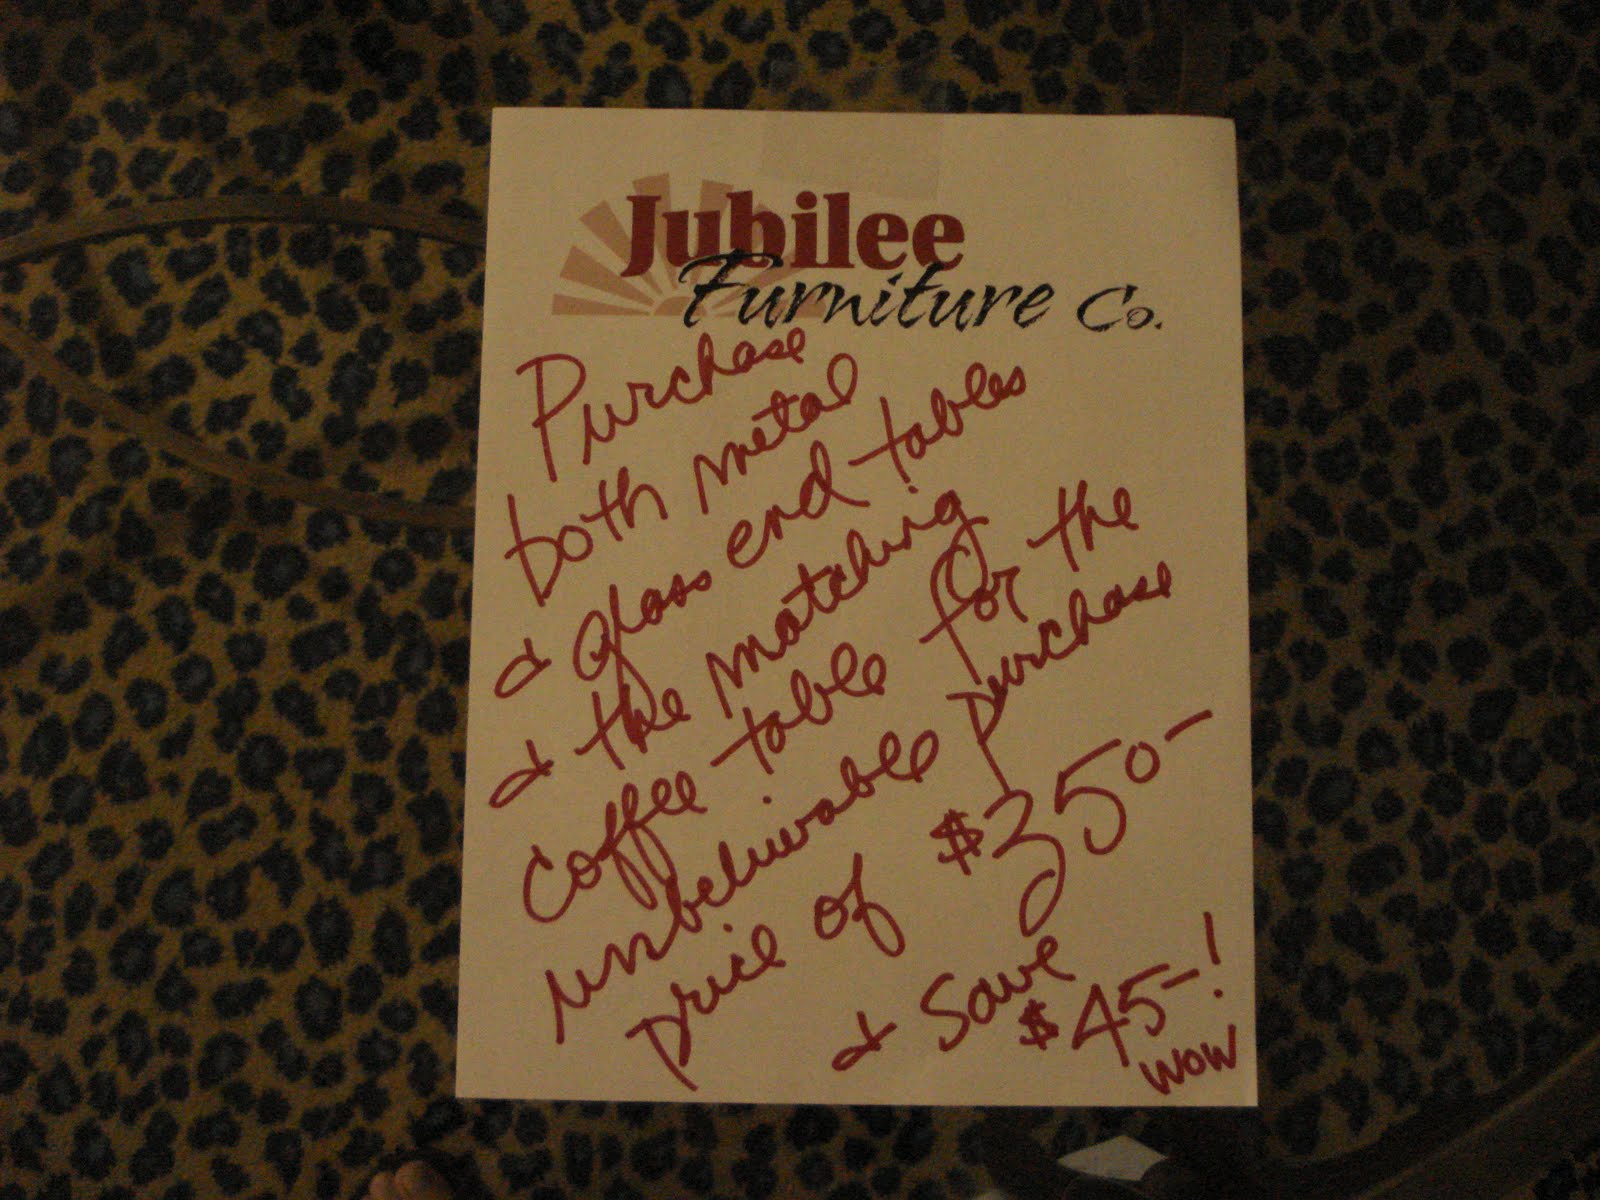 Jubilee
Furniture Co.
Purchase
both metal
& glass end tables
& the matching
coffee table for the
unbelivable purchase
price of $350-
& Save
$45-!
WOW